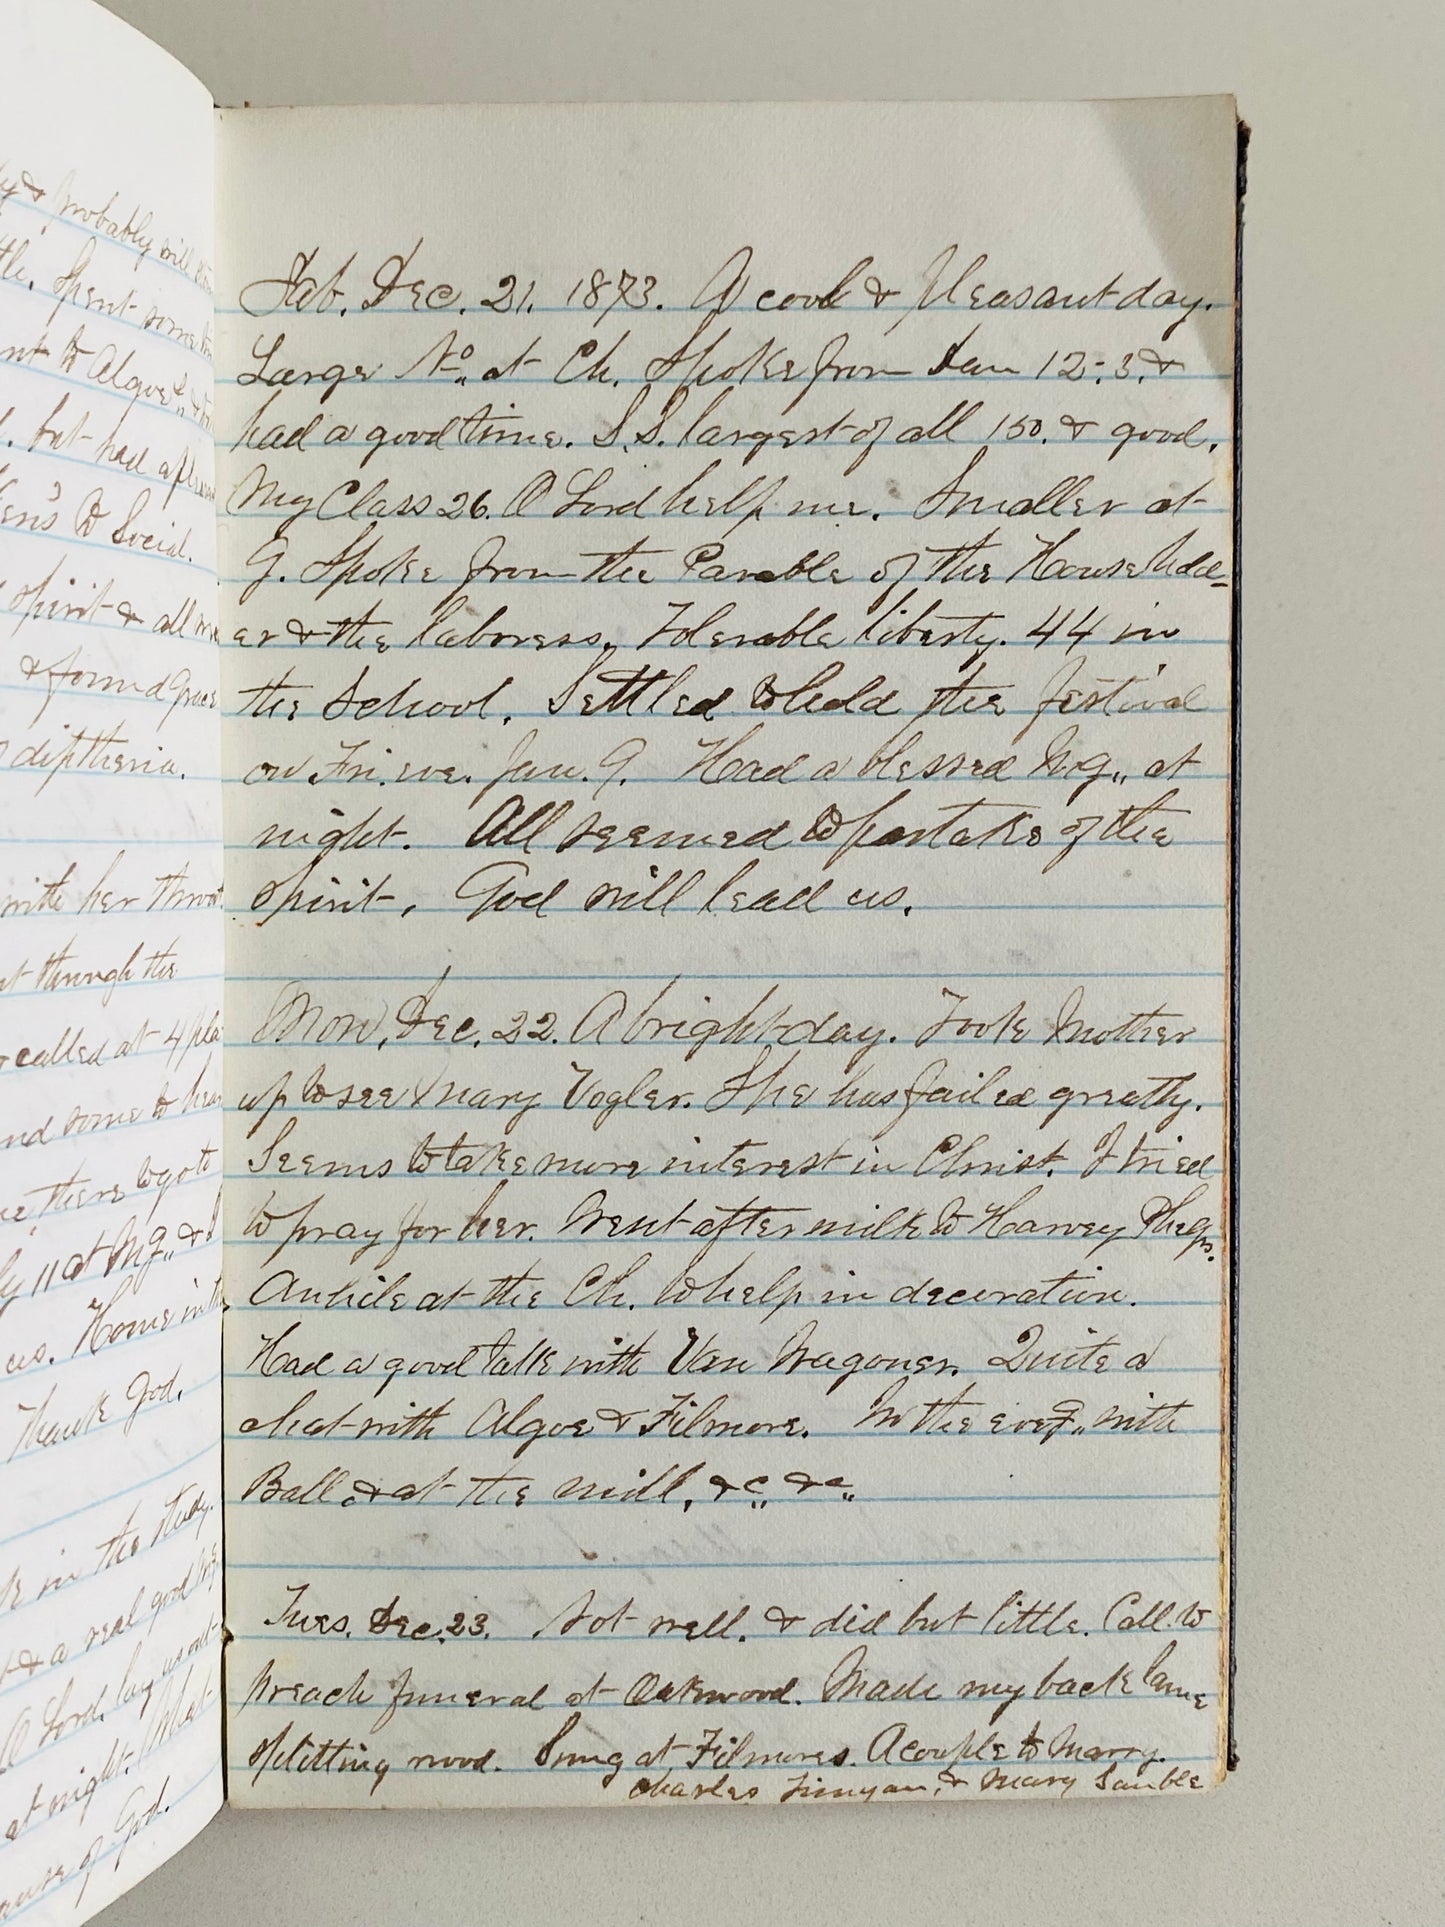 y & probably will
tle. Spent some
nt to Algoe's
. but had a pleasant
en's to Social.
spirit & all
& found Grace
diptheria.
with her throat
through the
called at 4 pla
nd some to hear
there to go to
11 at Mg,, & I
us. Home in the
Thank God.
in the study.
& a real good
O Lord, lay us out
at night. What
cause of God.
Sab. Dec. 21. 1873. A cool & Pleasant day.
Larger No. at Ch. Spoke from Dan 12-3. &
had a good time. S.S. largest of all 150. & good.
My Class 26. O Lord help me. Smaller at
G. Spoke from the Parable of the Household-
er & the laborers. Tolerable liberty. 44 in
the School. Settled to hold the festival
on Fri. eve. Jan. 9. Had a blessed Mg,, at
night. All seemed to partake of the
spirit. God will lead us.
Mon. Dec. 22. A bright day. Took Mother
up to see Mary Vogler. She has failed greatly.
Seems to take more interest in Christ. I tried
to pray for her. Went after milk to Harvey Phelps.
Awhile at the Ch. to help in decoration.
Had a good talk with Van Wagoner. Quite a
chat with Algoe & Filmore. In the eveg,, with
Ball & at the mill, &c,, &c,,
Tues. Dec. 23. Not well. & did but little. Call to
preach funeral at Oakwood. Made my back lame
splitting wood. Sung at Filmores. A couple to Marry.
Charles & Mary